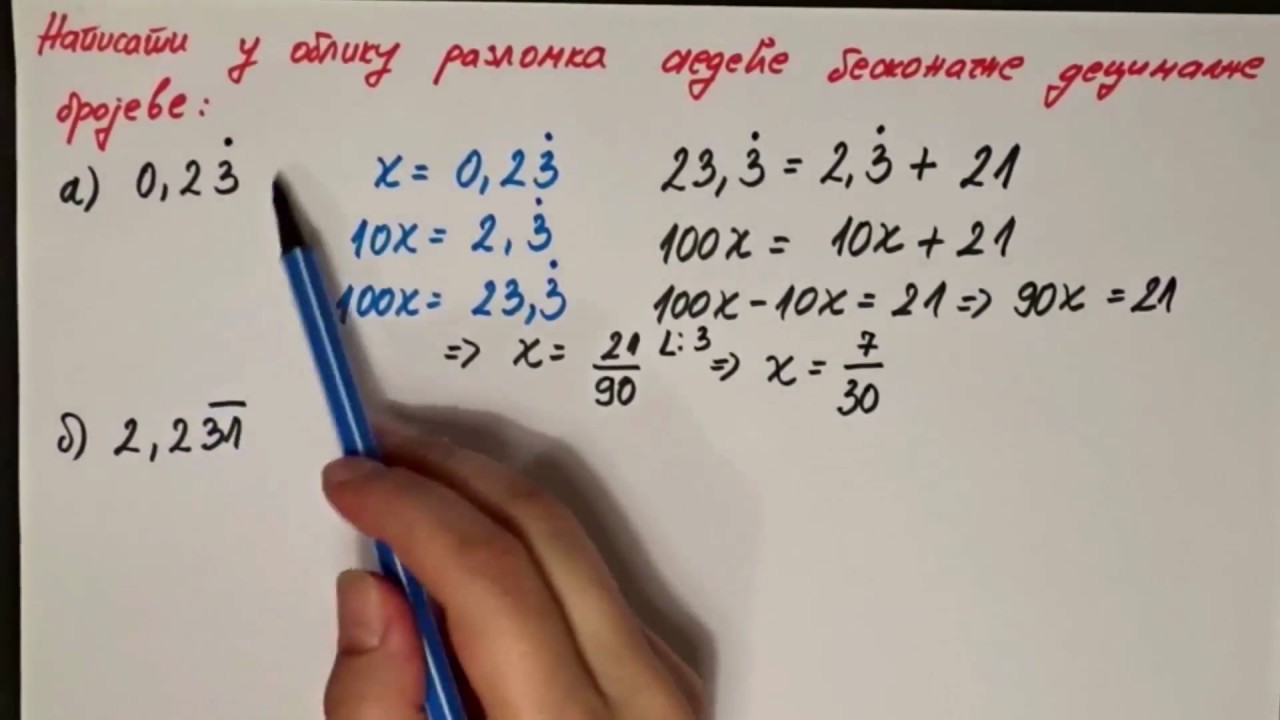 Написати у облику разломка следеће бесконачне децималне
бројеве:
а) 0,23̇ x = 0,23̇ 23,3̇ = 2,3̇ + 21
10x = 2,3̇ 100x = 10x + 21
100x = 23,3̇ 100x - 10x = 21 => 90x = 21
=> x = 21/90 L: 3 => x = 7/30
б) 2,23̅1̅